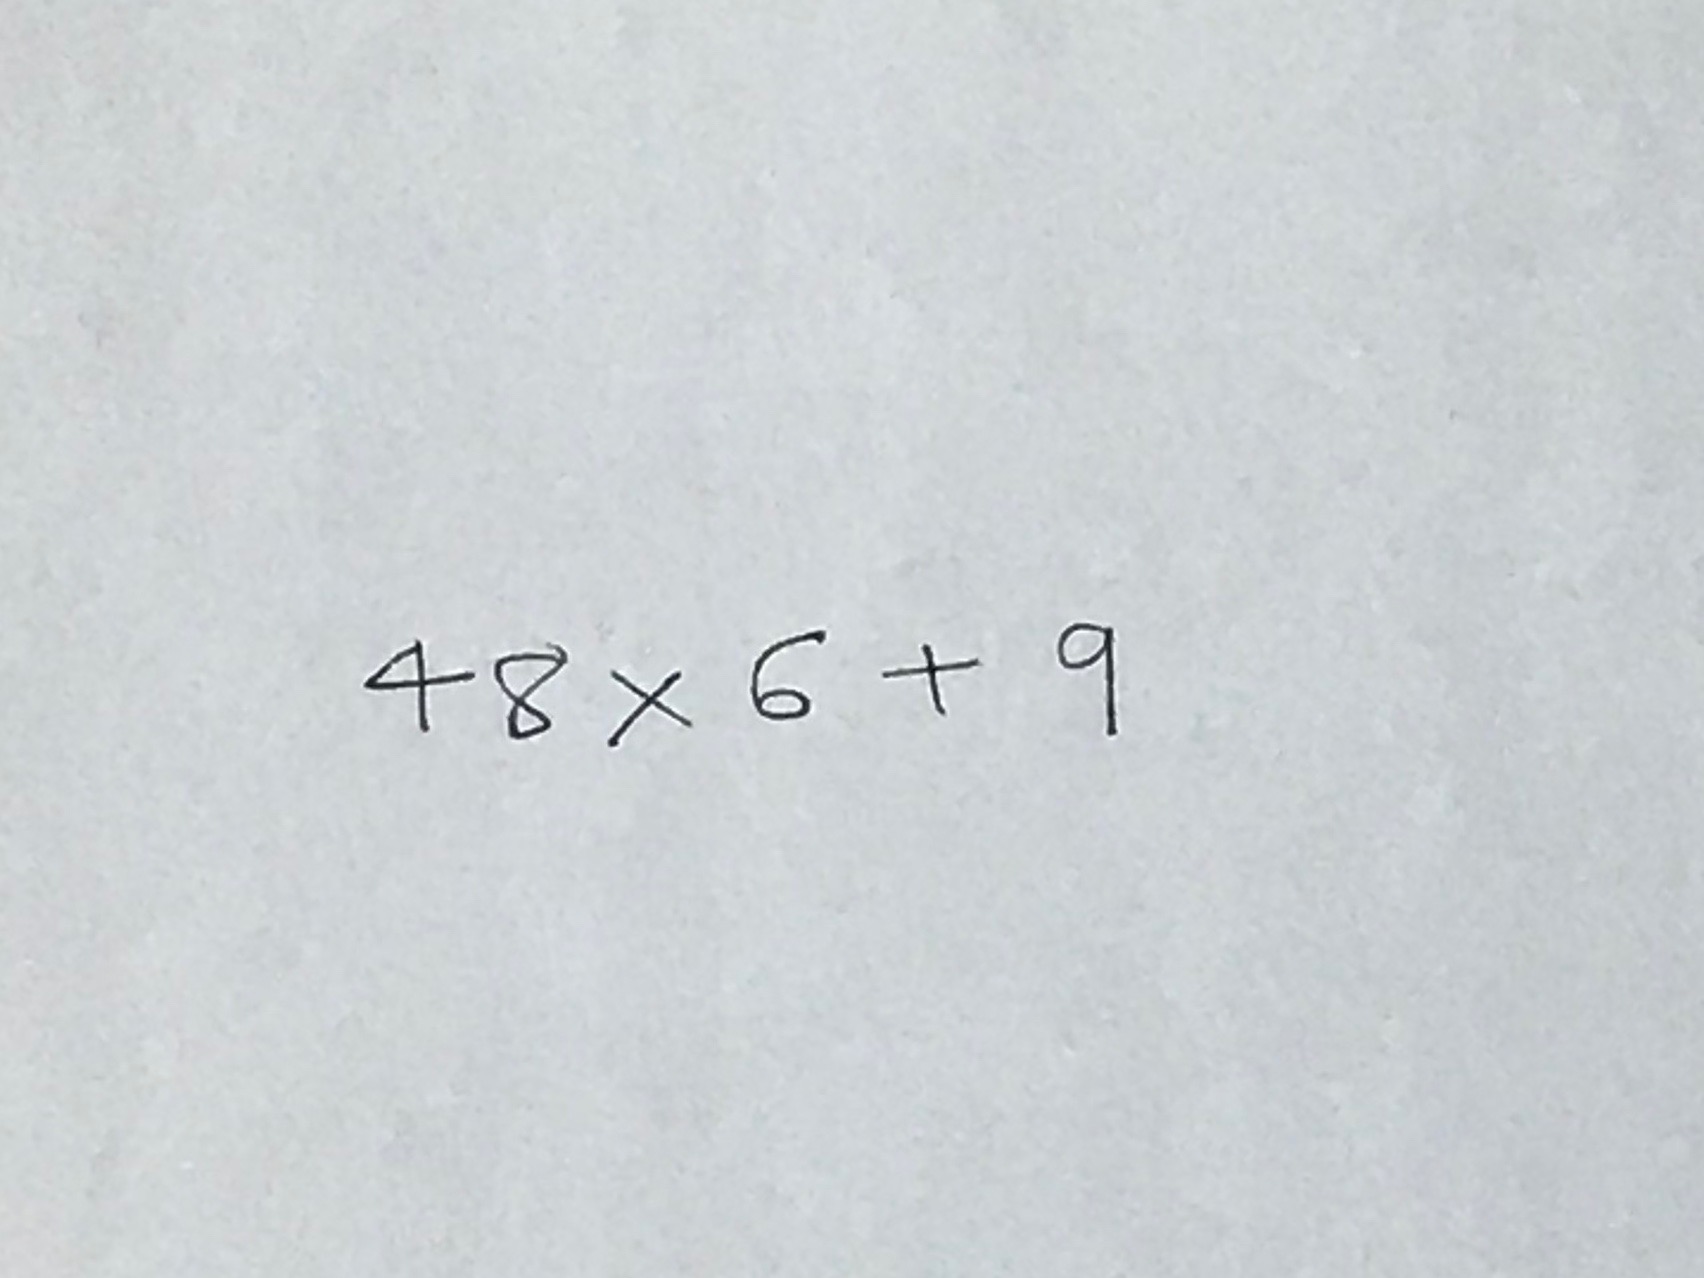 48 × 6 + 9